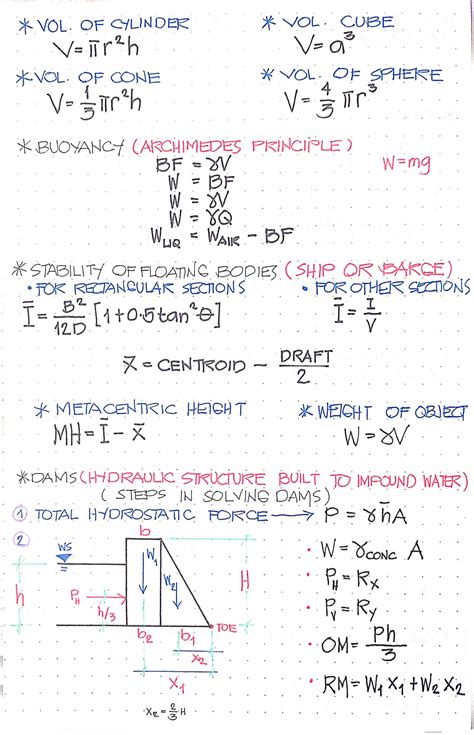 * VOL. OF CYLINDER
V = πr²h
* VOL. CUBE
V = a³
* VOL. OF CONE
V = 1/3 πr²h
* VOL. OF SPHERE
V = 4/3 πr³
* BUOYANCY (ARCHIMEDES PRINCIPLE)
W = mg
BF = γV
W = BF
W = γV
W = γQ
W_LIQ = W_AIR − BF
* STABILITY OF FLOATING BODIES (SHIP OR BARGE)
• FOR RECTANGULAR SECTIONS
Ī = B²/12D [1+0.5tan²θ]
• FOR OTHER SECTIONS
Ī = I/V
x̄ = CENTROID − DRAFT/2
* METACENTRIC HEIGHT
MH = Ī − x̄
* WEIGHT OF OBJECT
W = γV
* DAMS (HYDRAULIC STRUCTURE BUILT TO IMPOUND WATER)
(STEPS IN SOLVING DAMS)
① TOTAL HYDROSTATIC FORCE → P = γh̄A
②
b
WS
W₁
W₂
H
h
P_H
h/3
TOE
b₂
b₁
X₂
X₁
X₂ = 2/3 H
• W = γ_CONC A
• P_H = R_X
• P_V = R_Y
• OM = Ph/3
• RM = W₁X₁ + W₂X₂